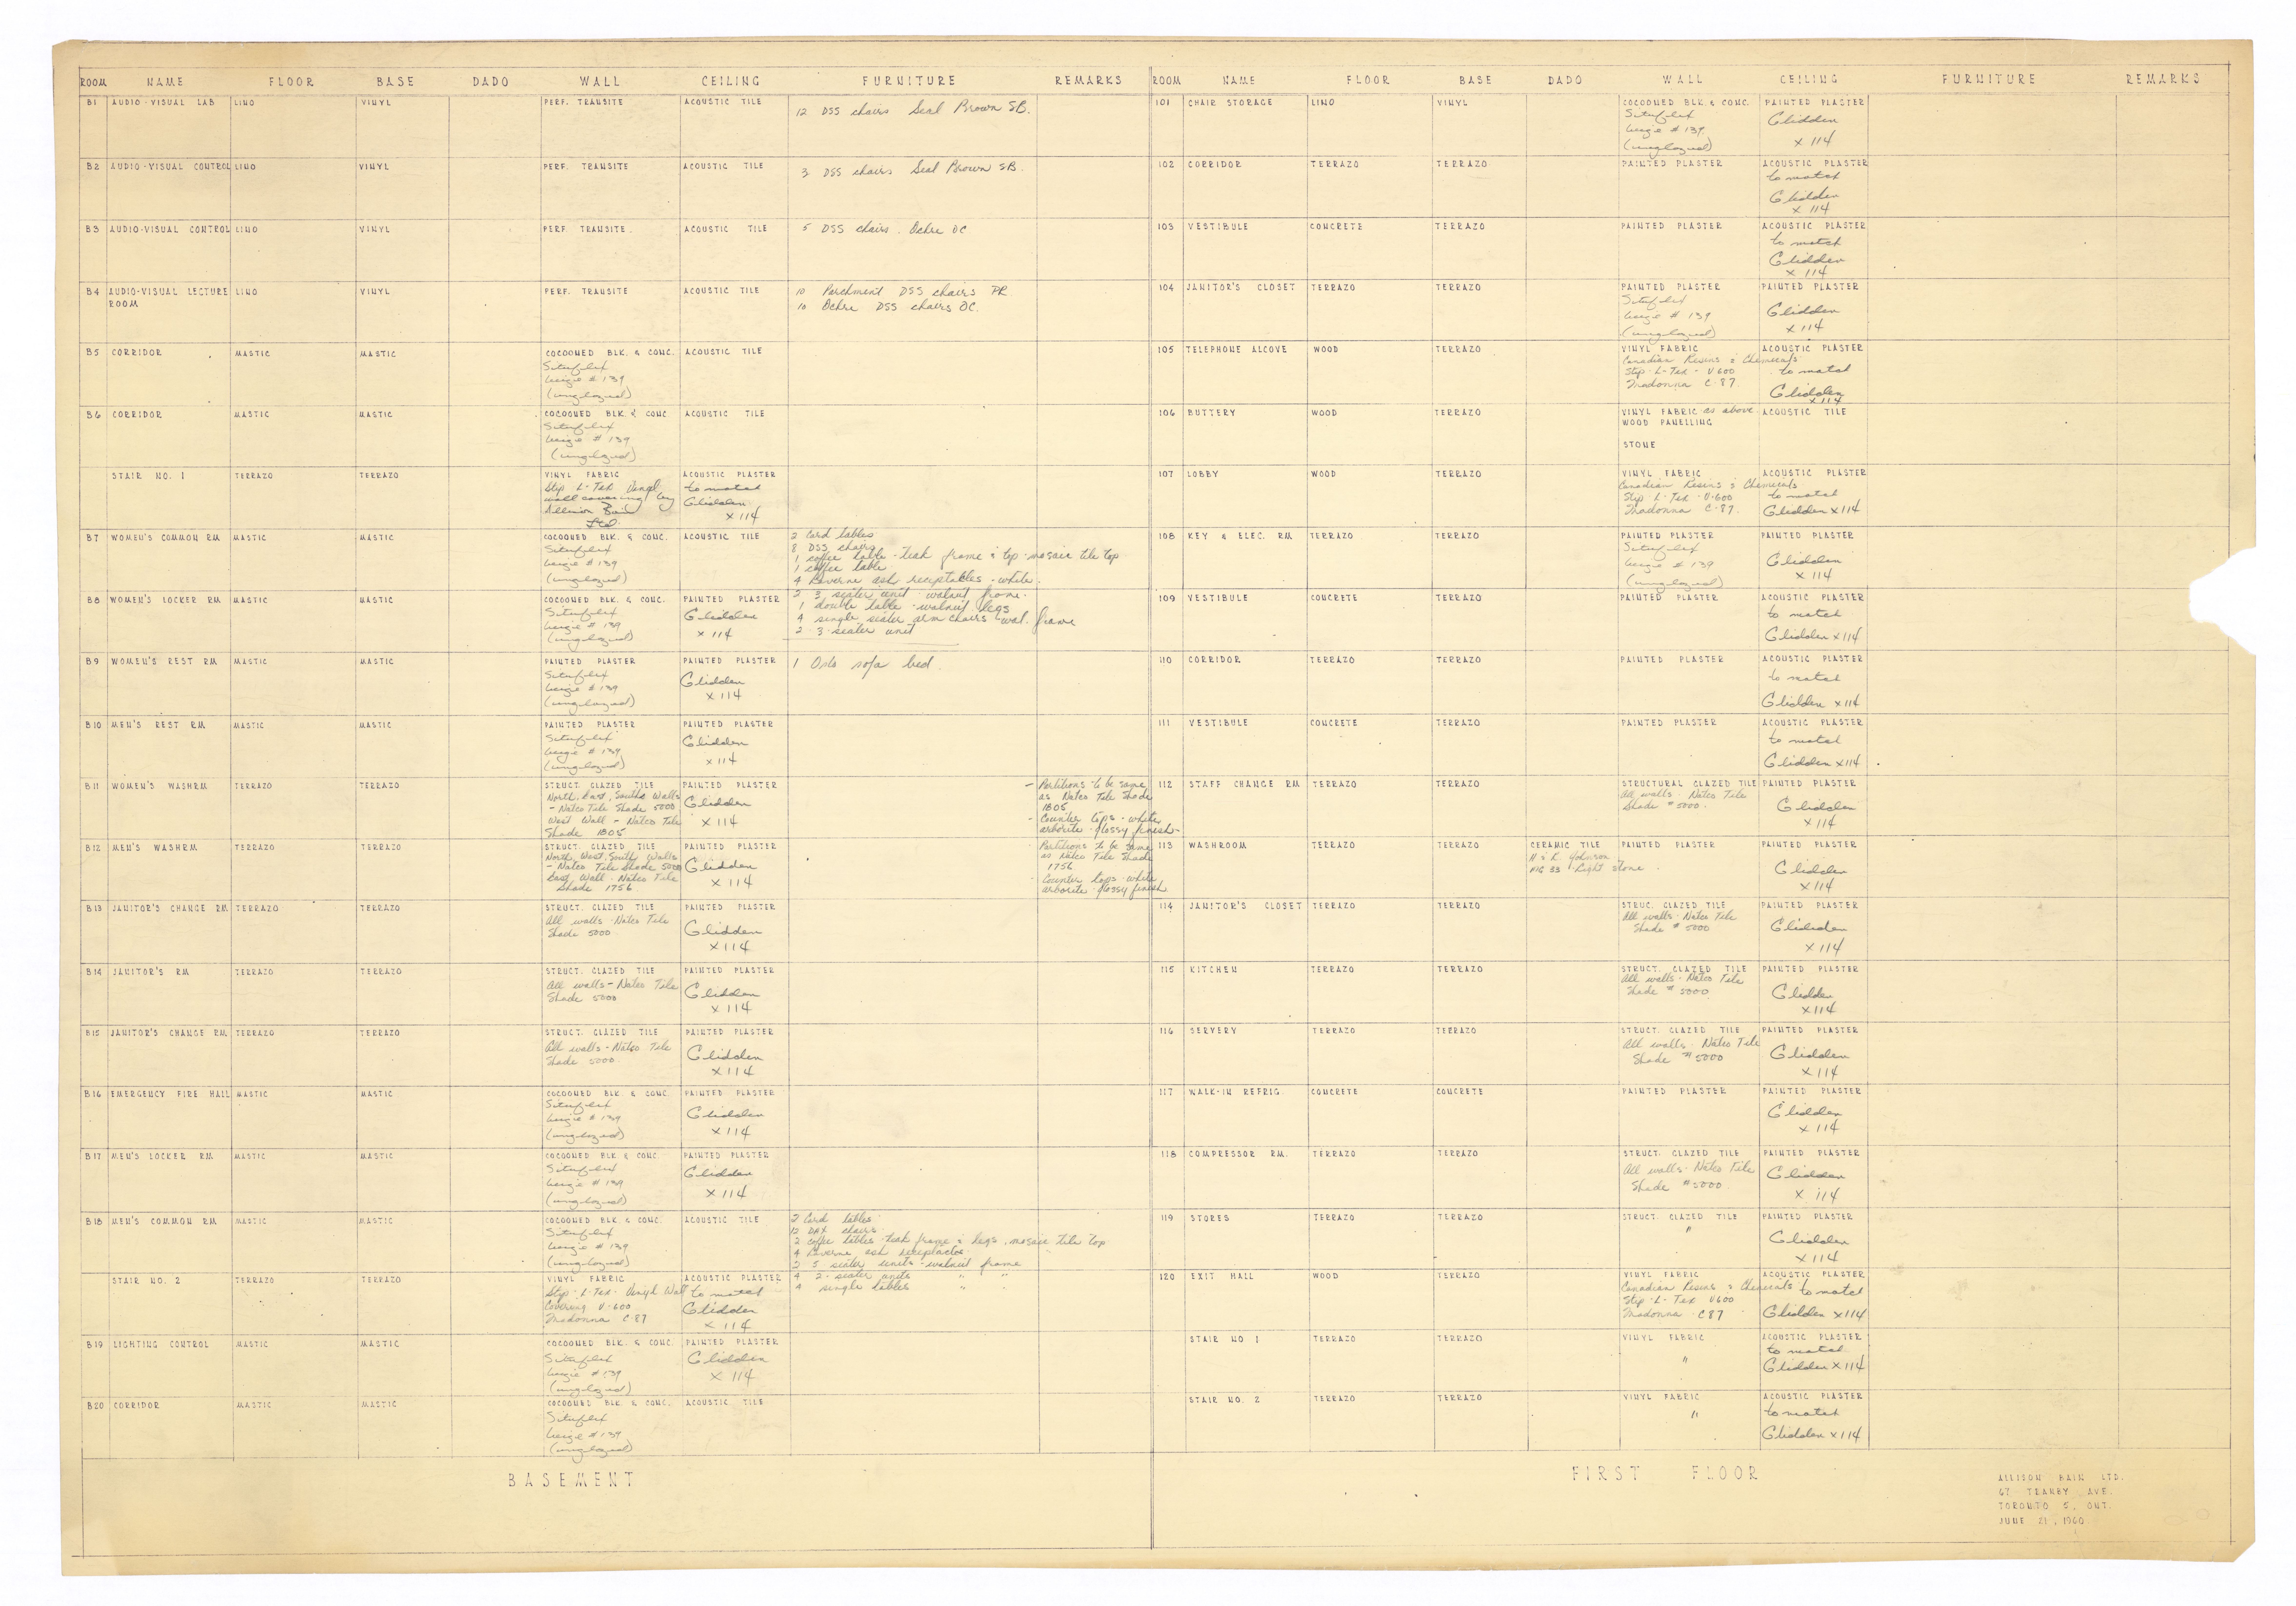 ROOM NAME FLOOR BASE DADO WALL CEILING FURNITURE REMARKS
B1 AUDIO-VISUAL LAB LINO VINYL PERF. TRANSITE ACOUSTIC TILE 12 DSS chairs Seal Brown SB.
B2 AUDIO-VISUAL CONTROL LINO VINYL PERF. TRANSITE ACOUSTIC TILE 3 DSS chairs Seal Brown SB.
B3 AUDIO-VISUAL CONTROL LINO VINYL PERF. TRANSITE. ACOUSTIC TILE 5 DSS chairs. Ochre OC
B4 AUDIO-VISUAL LECTURE LINO VINYL PERF. TRANSITE ACOUSTIC TILE 10 Parchment DSS chairs PR
ROOM 10 Ochre DSS chairs OC.
B5 CORRIDOR MASTIC MASTIC COCOONED BLK. & CONC. ACOUSTIC TILE
# 139
(unglazed)
B6 CORRIDOR MASTIC MASTIC COCOONED BLK. & CONC. ACOUSTIC TILE
# 139
(unglazed)
STAIR NO. 1 TERRAZO TERRAZO VINYL FABRIC ACOUSTIC PLASTER
Stip L-Tex Vinyl to match
wall covering by Glidden
Allison Bain x 114
Ltd.
B7 WOMEN'S COMMON RM MASTIC MASTIC COCOONED BLK. & CONC. ACOUSTIC TILE 2 Card tables
8 DSS chairs
1 coffee table - teak frame & top - mosaic tile top
# 139 1 coffee table
(unglazed) 4 Laverne ash receptables - white.
B8 WOMEN'S LOCKER RM MASTIC MASTIC COCOONED BLK. & CONC. PAINTED PLASTER 2 3 seater unit walnut frame.
Glidden 1 double table - walnut legs
# 139 x 114 4 single seater arm chairs wal. frame
(unglazed) 2 - 3 - seater unit
B9 WOMEN'S REST RM MASTIC MASTIC PAINTED PLASTER PAINTED PLASTER 1 Oslo sofa bed.
Glidden
# 139 x 114
(unglazed)
B10 MEN'S REST RM MASTIC MASTIC PAINTED PLASTER PAINTED PLASTER
Glidden
# 139 x 114
(unglazed)
B11 WOMEN'S WASHRM TERRAZO TERRAZO STRUCT. GLAZED TILE PAINTED PLASTER - Partitions to be same
North, East, South Walls Glidden as Natco Tile Shade
- Natco Tile Shade 5000 x 114 1805
West Wall - Natco Tile - Counter tops - white
Shade 1805 arborite - glossy finish -
B12 MEN'S WASHRM TERRAZO TERRAZO STRUCT. GLAZED TILE PAINTED PLASTER Partitions to be same
North, West, South Walls Glidden as Natco Tile Shade
- Natco Tile Shade 5000 x 114 1756
East Wall - Natco Tile Counter tops - white
Shade 1756 arborite - glossy finish.
B13 JANITOR'S CHANGE RM TERRAZO TERRAZO STRUCT. GLAZED TILE PAINTED PLASTER
All walls - Natco Tile Glidden
Shade 5000 x 114
B14 JANITOR'S RM TERRAZO TERRAZO STRUCT. GLAZED TILE PAINTED PLASTER
All walls - Natco Tile Glidden
Shade 5000 x 114
B15 JANITOR'S CHANGE RM. TERRAZO TERRAZO STRUCT. GLAZED TILE PAINTED PLASTER
All walls - Natco Tile Glidden
Shade 5000. x 114
B16 EMERGENCY FIRE HALL MASTIC MASTIC COCOONED BLK. & CONC. PAINTED PLASTER
Glidden
# 139 x 114
(unglazed)
B17 MEN'S LOCKER RM. MASTIC MASTIC COCOONED BLK & CONC. PAINTED PLASTER
Glidden
# 139 x 114
(unglazed)
B18 MEN'S COMMON RM MASTIC MASTIC COCOONED BLK. & CONC. ACOUSTIC TILE 2 Card tables
12 DAX chairs
2 coffee tables - teak frame & legs. mosaic tile top
# 139 4 Laverne ash receptacles
(unglazed) 2 3 seater units - walnut frame
STAIR NO. 2 TERRAZO TERRAZO VINYL FABRIC ACOUSTIC PLASTER 4 2 - seater units " "
Stip - L - Tex - Vinyl Wall to match 4 single tables " "
Covering V-600 Glidden
Madonna C-87 x 114
B19 LIGHTING CONTROL MASTIC MASTIC COCOONED BLK. & CONC. PAINTED PLASTER
Glidden
# 139 x 114
(unglazed)
B20 CORRIDOR MASTIC MASTIC COCOONED BLK. & CONC. ACOUSTIC TILE
# 139
(unglazed)
BASEMENT
ROOM NAME FLOOR BASE DADO WALL CEILING FURNITURE REMARKS
101 CHAIR STORAGE LINO VINYL COCOONED BLK. & CONC. PAINTED PLASTER
Glidden
# 139 x 114
(unglazed)
102 CORRIDOR TERRAZO TERRAZO PAINTED PLASTER ACOUSTIC PLASTER
to match
Glidden
x 114
103 VESTIBULE CONCRETE TERRAZO PAINTED PLASTER ACOUSTIC PLASTER
to match
Glidden
x 114
104 JANITOR'S CLOSET TERRAZO TERRAZO PAINTED PLASTER PAINTED PLASTER
Glidden
# 139 x 114
(unglazed)
105 TELEPHONE ALCOVE WOOD TERRAZO VINYL FABRIC ACOUSTIC PLASTER
Canadian Resins & Chemicals
Stip - L-Tex - V600 to match
Madonna C-87. Glidden
x 114
106 BUTTERY WOOD TERRAZO VINYL FABRIC as above ACOUSTIC TILE
WOOD PANELLING
STONE
107 LOBBY WOOD TERRAZO VINYL FABRIC ACOUSTIC PLASTER
Canadian Resins & Chemicals
Stip L-Tex - V-600 to match
Madonna C-87. Glidden x 114
108 KEY & ELEC. RM TERRAZO TERRAZO PAINTED PLASTER PAINTED PLASTER
Glidden
# 139 x 114
(unglazed)
109 VESTIBULE CONCRETE TERRAZO PAINTED PLASTER ACOUSTIC PLASTER
to match
Glidden x 114
110 CORRIDOR TERRAZO TERRAZO PAINTED PLASTER ACOUSTIC PLASTER
to match
Glidden x 114
111 VESTIBULE CONCRETE TERRAZO PAINTED PLASTER ACOUSTIC PLASTER
to match
Glidden x 114
112 STAFF CHANGE RM TERRAZO TERRAZO STRUCTURAL GLAZED TILE PAINTED PLASTER
All walls - Natco Tile Glidden
Shade # 5000. x 114
113 WASHROOM TERRAZO TERRAZO CERAMIC TILE PAINTED PLASTER PAINTED PLASTER
H & R. Johnson Glidden
33 - Light stone x 114
114 JANITOR'S CLOSET TERRAZO TERRAZO STRUCT. GLAZED TILE PAINTED PLASTER
All walls - Natco Tile Glidden
Shade # 5000 x 114
115 KITCHEN TERRAZO TERRAZO STRUCT. GLAZED TILE PAINTED PLASTER
All walls - Natco Tile Glidden
Shade # 5000 x 114
116 SERVERY TERRAZO TERRAZO STRUCT. GLAZED TILE PAINTED PLASTER
All walls - Natco Tile Glidden
Shade # 5000 x 114
117 WALK-IN REFRIG. CONCRETE CONCRETE PAINTED PLASTER PAINTED PLASTER
Glidden
x 114
118 COMPRESSOR RM. TERRAZO TERRAZO STRUCT. GLAZED TILE PAINTED PLASTER
All walls - Natco Tile Glidden
Shade # 5000 x 114
119 STORES TERRAZO TERRAZO STRUCT. GLAZED TILE PAINTED PLASTER
" Glidden
x 114
120 EXIT HALL WOOD TERRAZO VINYL FABRIC ACOUSTIC PLASTER
Canadian Resins & Chemicals to match
Stip - L - Tex V600
Madonna C87 Glidden x 114
STAIR NO 1 TERRAZO TERRAZO VINYL FABRIC ACOUSTIC PLASTER
" to match
Glidden x 114
STAIR NO. 2 TERRAZO TERRAZO VINYL FABRIC ACOUSTIC PLASTER
" to match
Glidden x 114
FIRST FLOOR
ALLISON BAIN LTD.
67 TRANBY AVE.
TORONTO 5, ONT.
JUNE 21, 1960